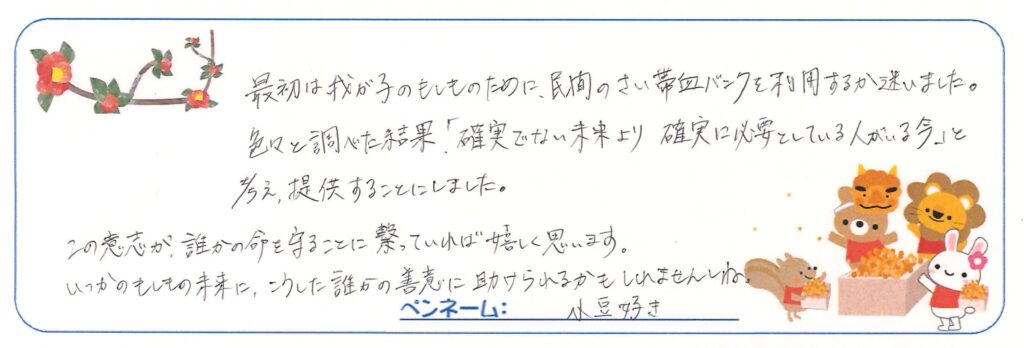 最初は我が子のもしものために、民間のさい帯血バンクを利用するか迷いました。
色々と調べた結果、「確実でない未来より 確実に必要としている人がいる今」と
考え、提供することにしました。
この意志が、誰かの命を守ることに繋っていれば嬉しく思います。
いつかのもしもの未来に、こうした誰かの善意に助けられるかもしれませんしね。
ペンネーム: 小豆好き